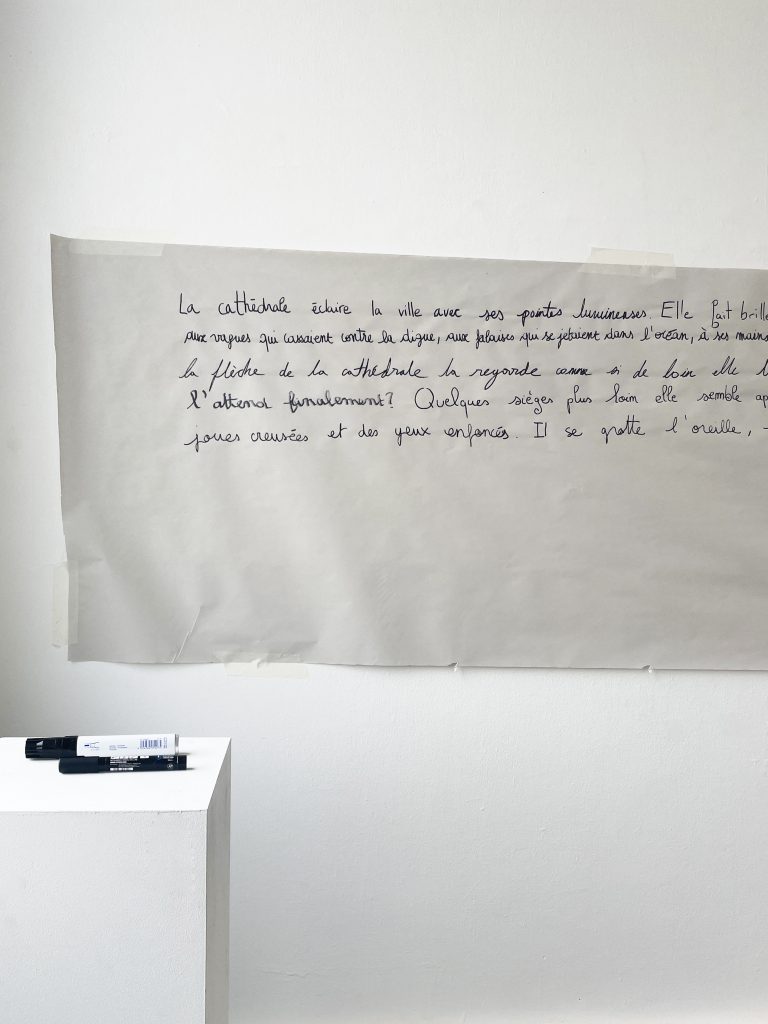 La cathédrale éclaire la ville avec ses pointes lumineuses. Elle fait brille
aux vagues qui cassaient contre la digue, aux falaises qui se jetaient dans l'océan, à ses mains
la flèche de la cathédrale la regarde comme si de loin elle l
l'attend finalement? Quelques sièges plus loin elle semble ap
joues creusées et des yeux enfoncés. Il se gratte l'oreille,